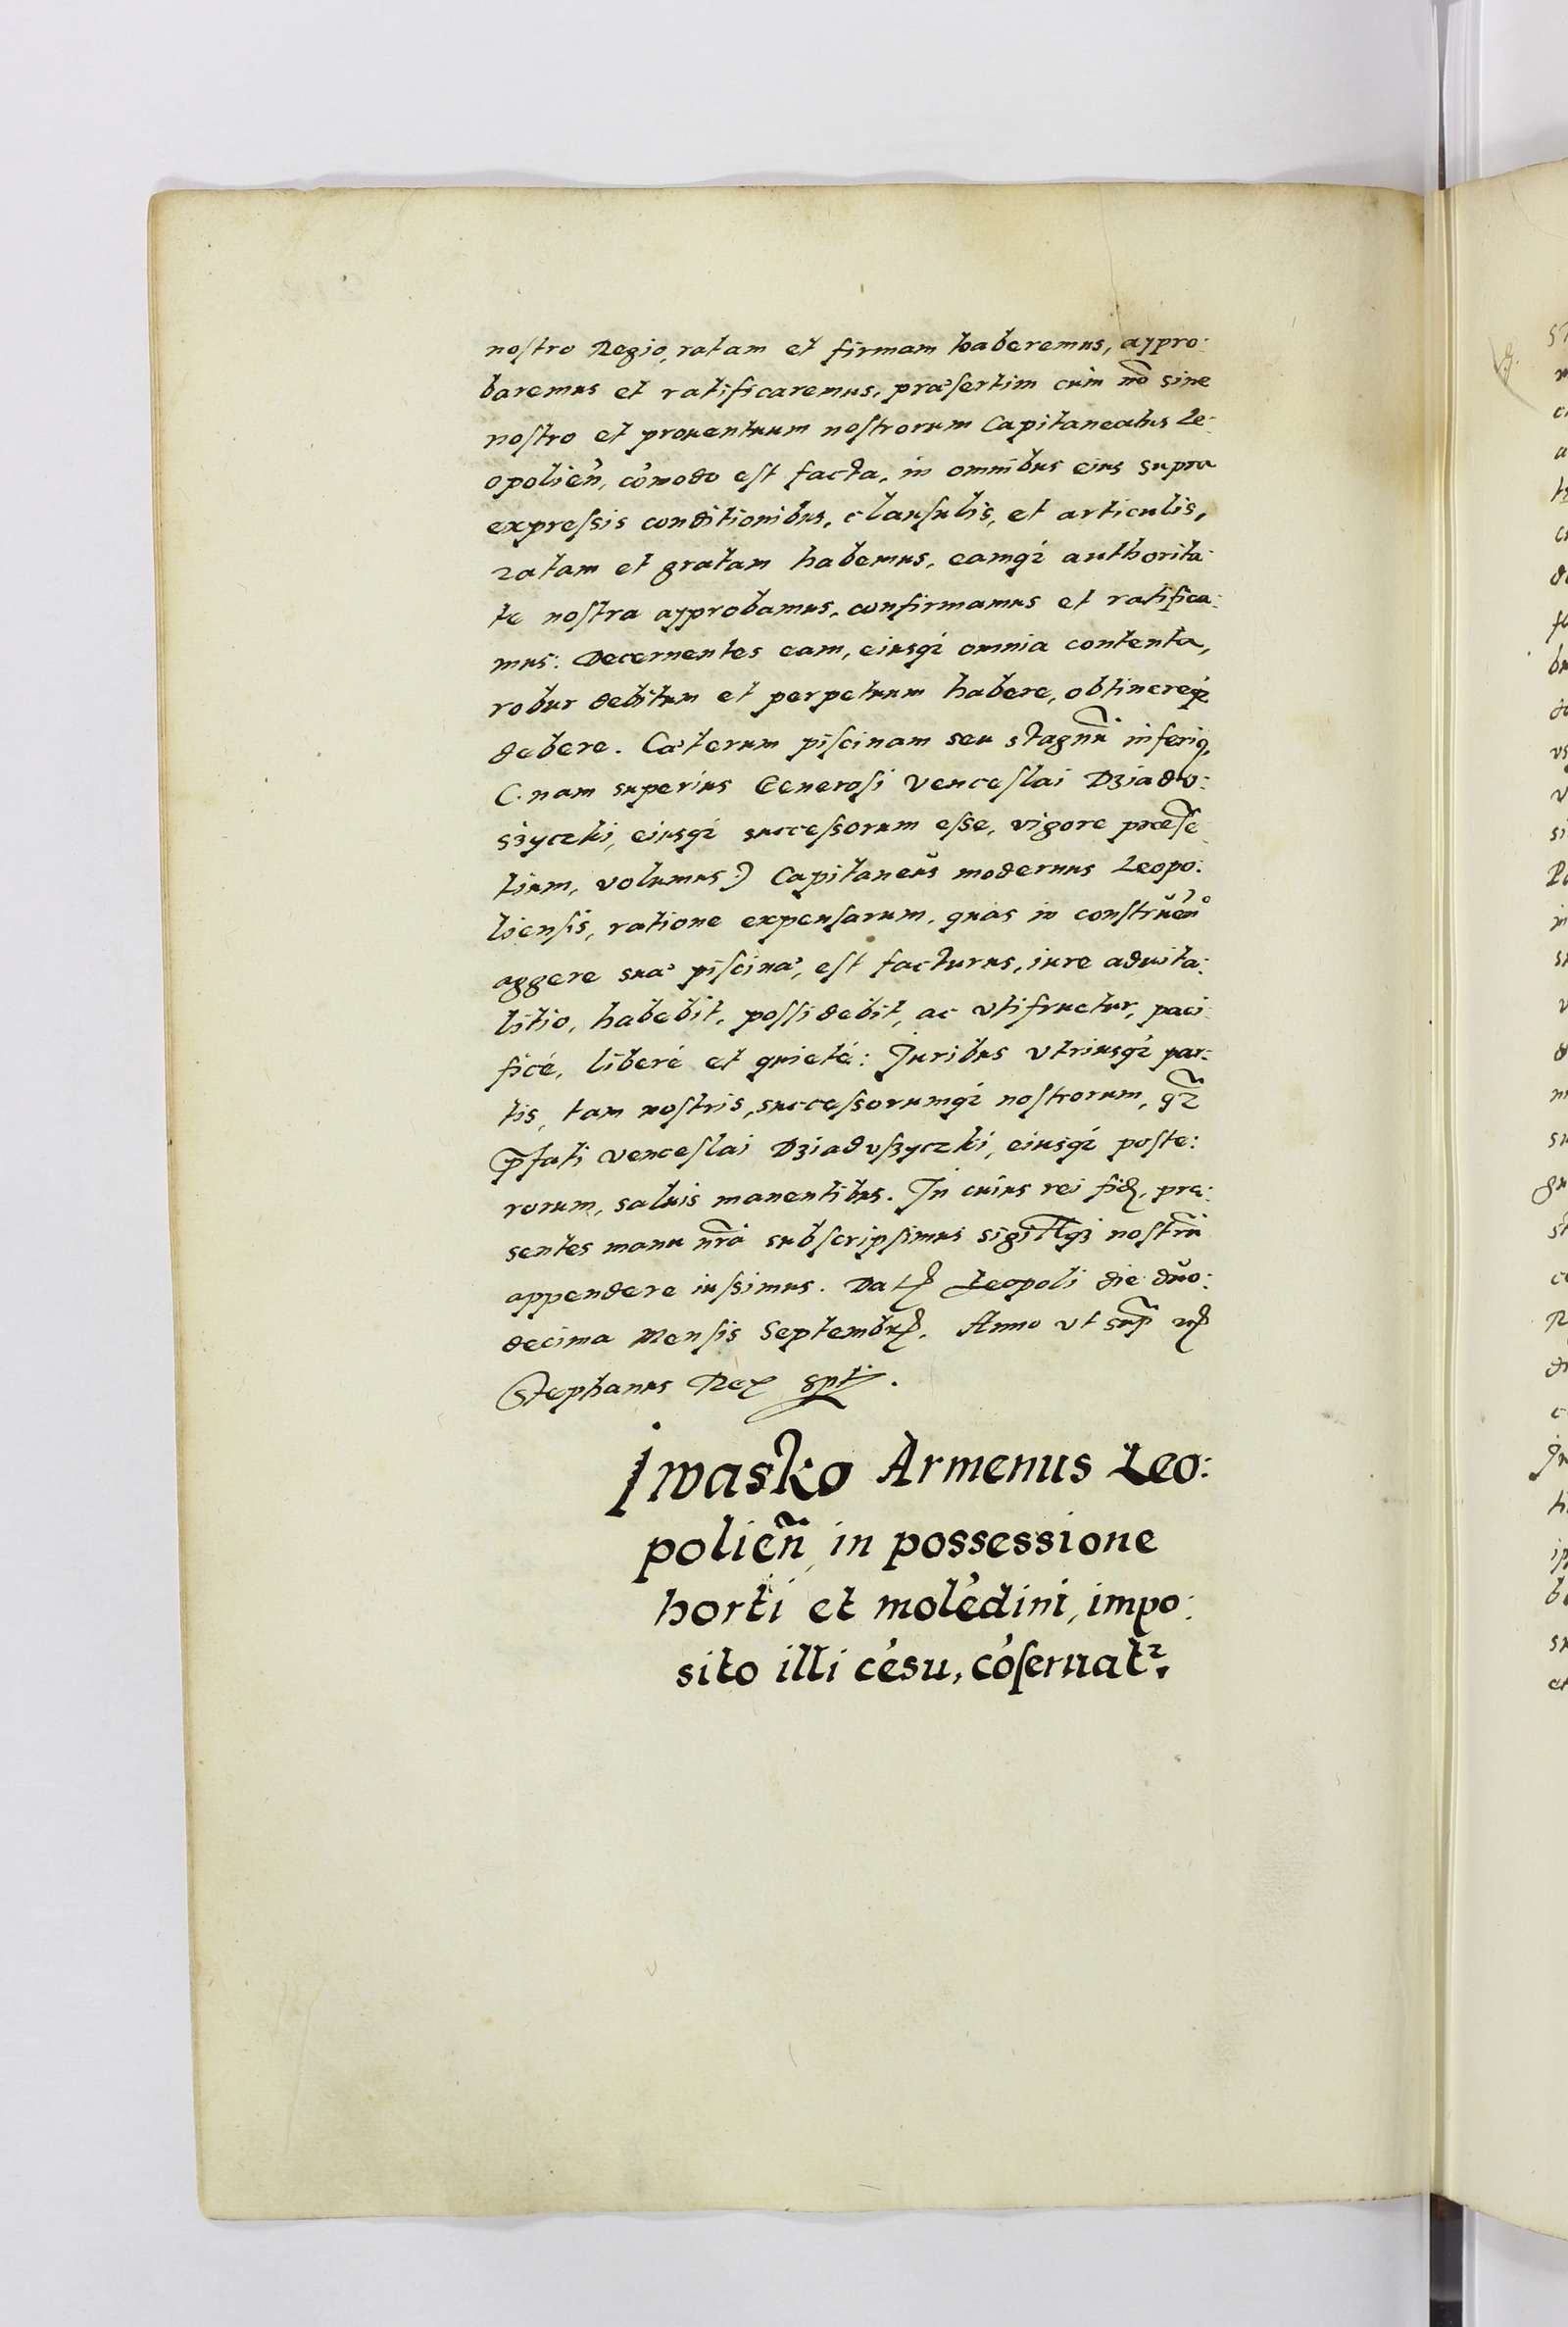 nostro Regio, ratam et firmam haberemus, appro:
baremus et ratificaremus, præsertim cum nō sine
nostro et prouentuum nostrorum Capitaneatus Le:
opolien̄, cōmodo est facta, in omnibus eius supra
expressis conditionibus, clausulis, et articulis,
ratam et gratam habemus, eamq; authorita:
te nostra approbamus, confirmamus et ratifica:
mus: Decernentes eam, eiusq; omnia contenta,
robur debitum et perpetuum habere, obtinereq;
debere. Cæterum piscinam seu stagnū inferiq,
(nam superius Generosi Venceslai Dziadu:
szyczki, eiusq; successorum esse, vigore præsē
tium, volumus) Capitaneus modernus Leopo:
liensis, ratione expensarum, quas in construēn̄o
aggere suæ piscinæ, est facturus, iure aduita:
litio, habebit, possidebit, ac vtifruetur, paci
ficé, liberé et quieté: Juribus vtriusq; par:
tis, tam nostris, successorumq; nostrorum, q̄z
p̄fati Venceslai Dziaduszyczki, eiusq; poste:
rorum, saluis manentibus. In cuius rei fidꝭ, præ:
sentes manu nr̄a subscripsimus sigillq; nostrū
appendere iussimus. Datꝭ Leopoli die duo:
decima Mensis Septembrꝭ. Anno vt sup̄
Stephanus Rex sptꝭ.
Iwasko Armenus Leo:
polien̄, in possessione
horti et molēdini, impo:
sito illi cēsu, cōseruatᷣ.